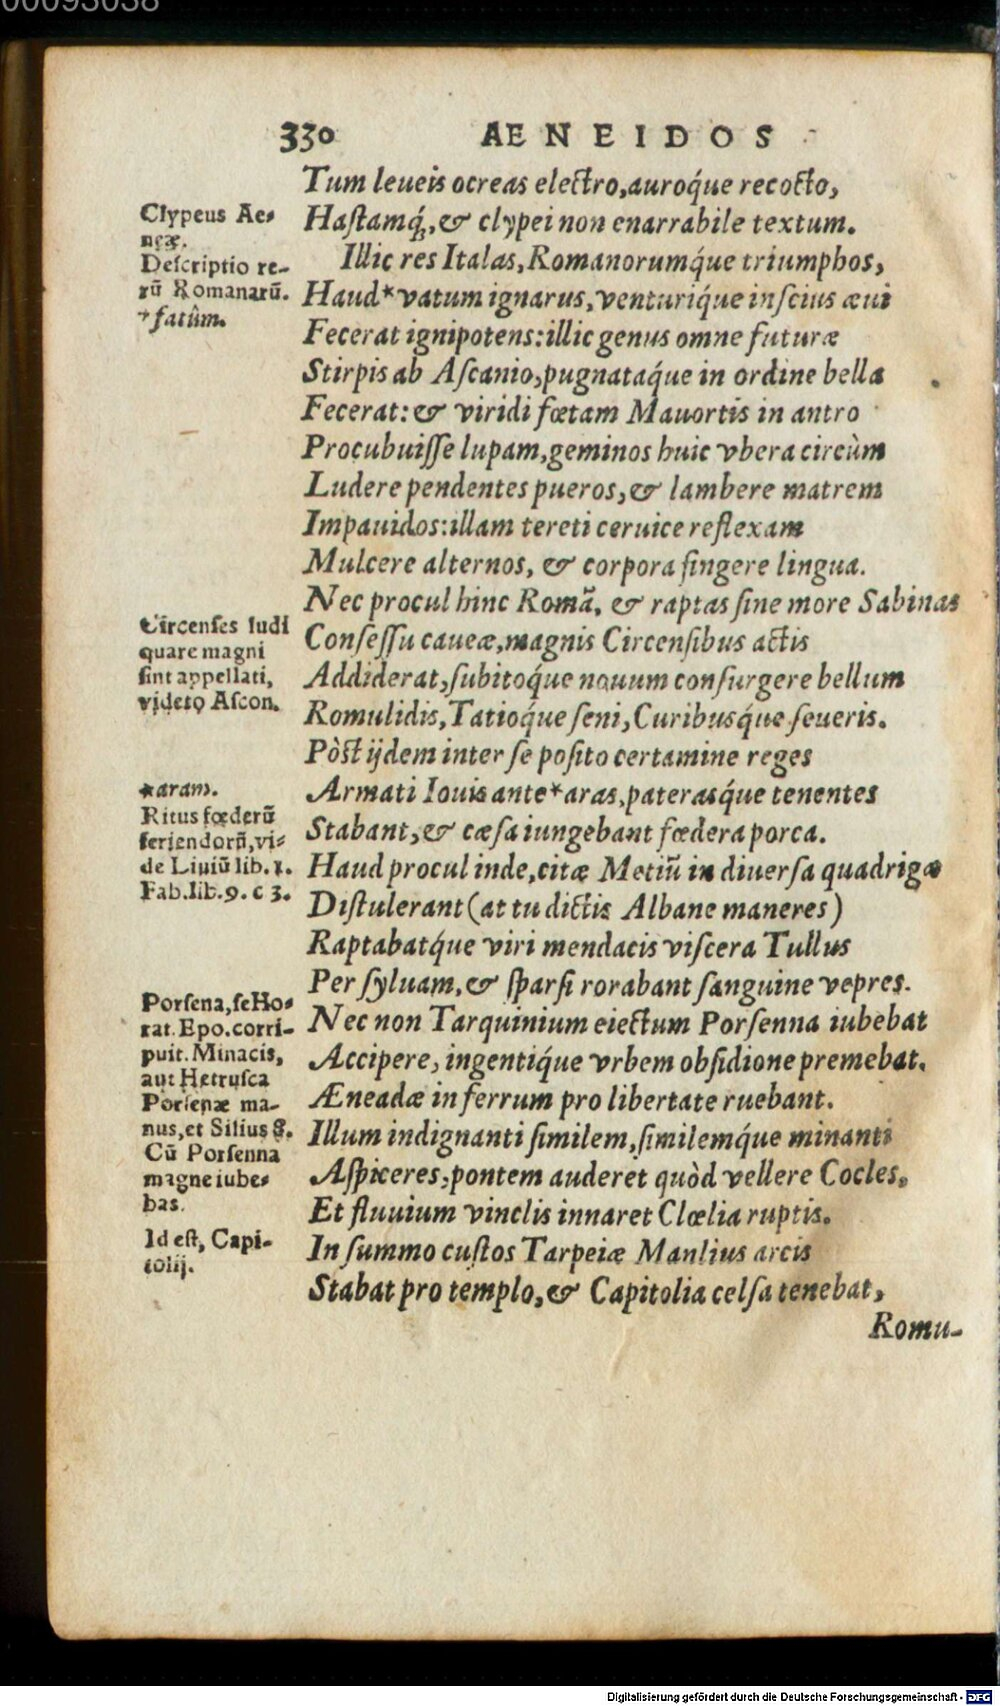 00093038
330 AENEIDOS
Tum leueis ocreas electro, auroq́ue recocto,
Hastamq́;, & clypei non enarrabile textum.
Illic res Italas, Romanorumq́ue triumphos,
Haud*vatum ignarus, venturiq́ue inscius æui
Fecerat ignipotens: illic genus omne futuræ
Stirpis ab Ascanio, pugnataq́ue in ordine bella
Fecerat: & viridi fœtam Mauortis in antro
Procubuisse lupam, geminos huic vbera circùm
Ludere pendentes pueros, & lambere matrem
Impauidos: illam tereti ceruice reflexam
Mulcere alternos, & corpora fingere lingua.
Nec procul hinc Romã, & raptas sine more Sabinas
Consessu caueæ, magnis Circensibus actis
Addiderat, subitoq́ue nouum consurgere bellum
Romulidis, Tatioq́ue seni, Curibusq́ue seueris.
Pòst ijdem inter se posito certamine reges
Armati Iouis ante*aras, paterasq́ue tenentes
Stabant, & cæsa iungebant fœdera porca.
Haud procul inde, citæ Metiũ in diuersa quadrigæ
Distulerant (at tu dictis Albane maneres)
Raptabatq́ue viri mendacis viscera Tullus
Per syluam, & sparsi rorabant sanguine vepres.
Nec non Tarquinium eiectum Porsenna iubebat
Accipere, ingentiq́ue vrbem obsidione premebat.
Æneadæ in ferrum pro libertate ruebant.
Illum indignanti similem, similemq́ue minanti
Aspiceres, pontem auderet quòd vellere Cocles,
Et fluuium vinclis innaret Clœlia ruptis.
In summo custos Tarpeiæ Manlius arcis
Stabat pro templo, & Capitolia celsa tenebat,
Romu-
Clypeus Ae-
neæ.
Descriptio re-
rũ Romanarũ.
*fatûm.
Circenses ludi
quare magni
sint appellati,
videto Ascon.
*aram.
Ritus fœderũ
feriendorũ, vi-
de Liuiũ lib. 1.
Fab. lib. 9. c 3.
Porsena, se Ho-
rat. Epo. corri-
puit. Minacis,
aut Hetrusca
Porsenæ ma-
nus, et Silius 8.
Cũ Porsenna
magne iube-
bas.
Id est, Capi-
tolij.
Digitalisierung gefördert durch die Deutsche Forschungsgemeinschaft - DFG